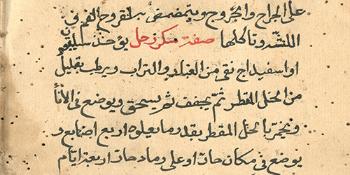 على الجراح والجروح ويتمضمض به لقروح الفم في
اللثة وتاكلها صفة زحل يوخذ
او اسفيداج نقي من الغبار والتراب ويرطب بقليل
من الخل المقطر ثم يجفف ثم يسحق ويوضع في الانا
بالخل المقطر بقدر ما يعلوه اربع اصابع و
يوضع في مكان حار او على رماد حار اربعة ايام